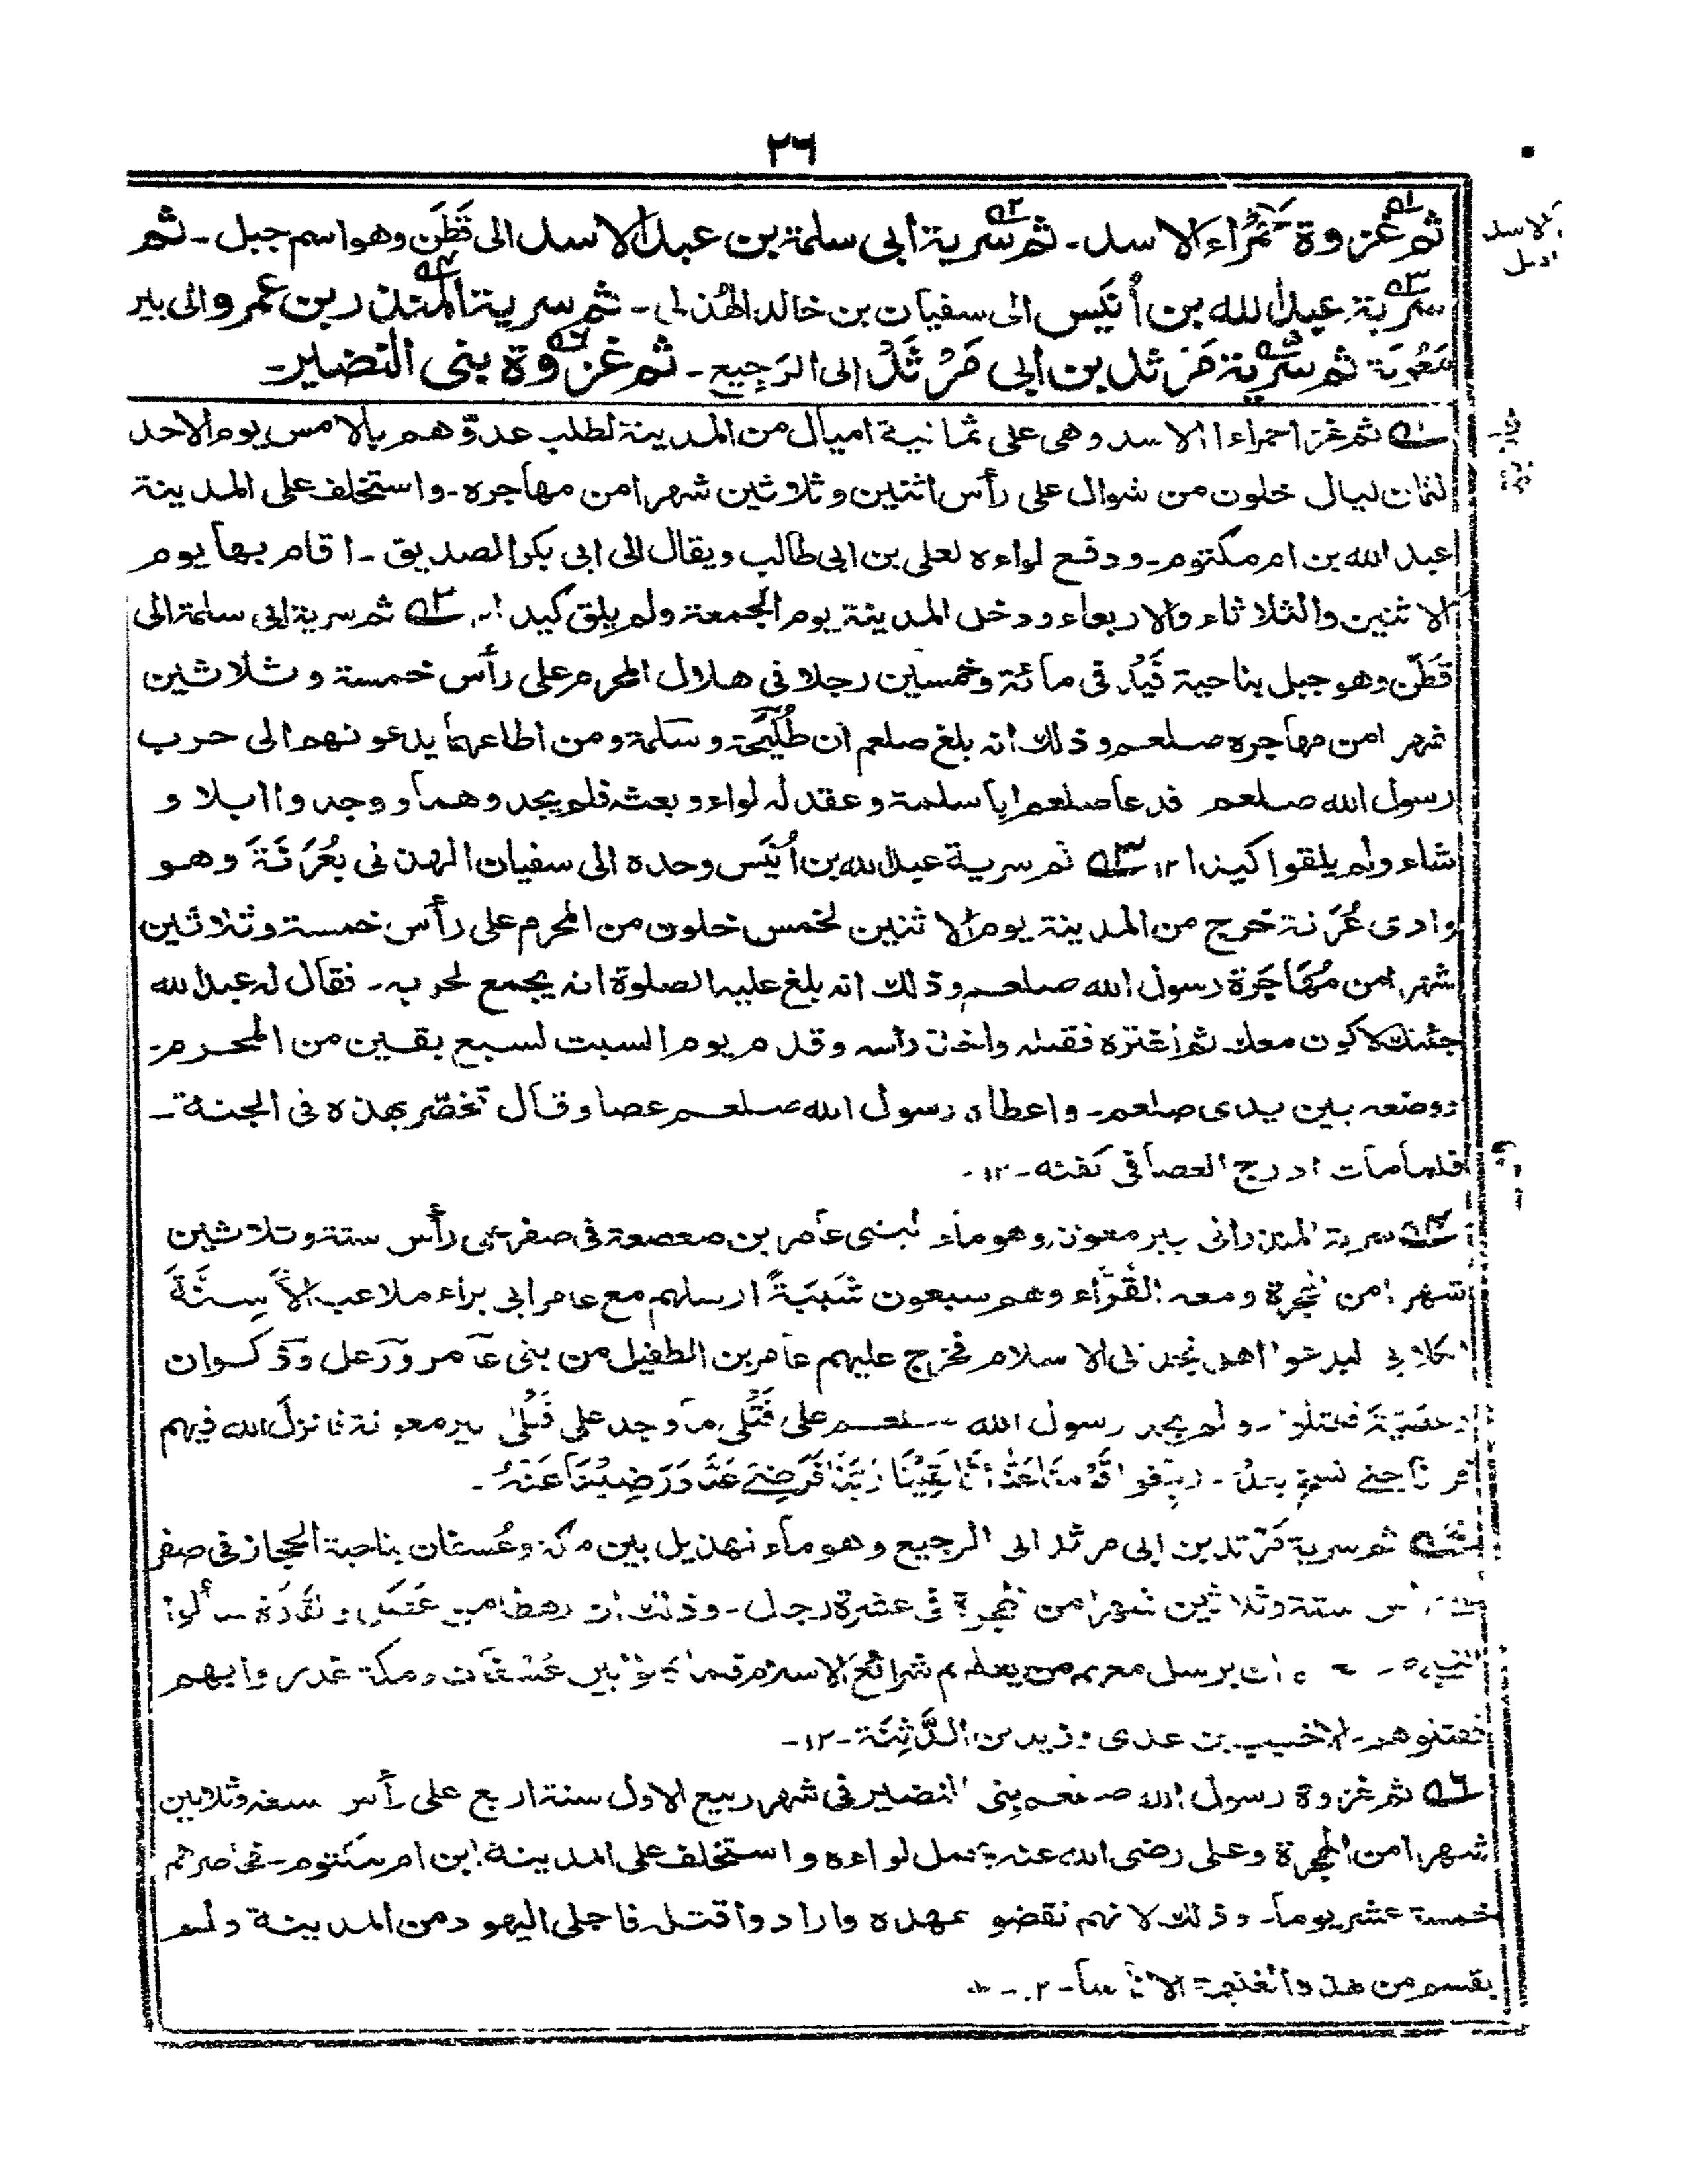 ٢٦
ثم غزوة حَمْرَاء الاسد۔ ثم سرية ابى سلمة بن عبد الاسد الى قَطَن وهو اسم جبل۔ ثم
سرية عبد الله بن أُنَيس الى سفيان بن خالد الهُذلى۔ ثم سرية المنذر بن عمرو الى بير
مَعُونة ثم سرية مَرْثد بن ابى مَرْثَد الى الرَجِيع۔ ثم غزوة بنى النضير۔
١ ثم غزا حمراء الاسد وهى على ثمانية اميال من المدينة لطلب عدوّهم بالامس يوم الاحد
لثمان ليال خلون من شوال على رأس اثنين وثلاثين شهرا من مهاجره۔ واستخلف على المدينة
عبد الله بن ام مكتوم۔ ودفع لواءه لعلى بن ابى طالب ويقال الى ابى بكر الصديق۔ اقام بها يوم
الاثنين والثلاثاء والاربعاء ودخل المدينة يوم الجمعة ولم يلق كيدا ٢ ثم سرية ابى سلمة الى
قَطَن وهو جبل بناحية فَيْد فى مائة وخمسين رجلا فى هلال المحرم على رأس خمسة وثلاثين
شهرا من مهاجره صلعم وذلك انه بلغ صلعم ان طُلَيحة وسلمة ومن اطاعهما يدعونهم الى حرب
رسول الله صلعم فدعا صلعم ابا سلمة وعقد له لواء وبعثه فلم يجدوهما ووجدوا ابلا و
شاء ولم يلقوا كيدا ١٢ ٣ ثم سرية عبد الله بن أُنَيس وحده الى سفيان الهذلى بعُرَنَة وهو
وادى عُرَنة خرج من المدينة يوم الاثنين لخمس خلون من المحرم على رأس خمسة وثلاثين
شهرا من مُهَاجَرة رسول الله صلعم وذلك انه بلغ عليه الصلوة انه يجمع لحربه۔ فقال له عبد الله
جئتك لاكون معك ثم اغتره فقتله واخذ راسه وقدم يوم السبت لسبع بقين من المحرم۔
ووضعه بين يدى صلعم۔ واعطاه رسول الله صلعم عصا وقال تخصّر بهذه فى الجنة۔
فلما مات ادرج العصا فى كفنه۔ ١٢۔
٤ سرية المنذر الى بير معونة وهو ماء لبنى عامر بن صعصعة فى صفر على رأس ستة وثلاثين
شهرا من الهجرة ومعه القرّاء وهم سبعون شَبَبَةً ارسلهم مع عامر ابى براء ملاعب الاَسِنَّةَ
الكلابى ليدعوا اهل نجد الى الاسلام فخرج عليهم عامر بن الطفيل من بنى عامر ورعل وذكوان
وعصيّة فقتلوا۔ ولم يجد رسول الله صلعم على قَتْلى ما وجد على قَتْلى بير معونة فانزل الله فيهم
بلّغوا قومنا عنا انا لقينا ربنا فَرَضِىَ عَنَّا وَرَضِيْنَا عَنْهُ۔
٥ ثم سرية مَرْثد بن ابى مرثد الى الرجيع وهو ماء لهذيل بين مكة وعُسفان بناحية الحجاز فى صفر
على رأس ستة وثلاثين شهرا من الهجرة فى عشرة رجال۔ وذلك ان رهطا من عَضَل والقَارَة سألوا
النبى ان يرسل معهم من يعلمهم شرائع الاسلام فلما كانوا بين عُسْفَان ومكة غدروا بهم
فقتلوهم۔ الا خبيب بن عدى وزيد بن الدَّثِنَة۔ ١٢۔
٦ ثم غزوة رسول الله صلعم بنى النضير فى شهر ربيع الاول سنة اربع على رأس سبعة وثلاثين
شهرا من الهجرة وعلى رضى الله عنه يحمل لواءه واستخلف على المدينة ابن ام مكتوم۔ فحاصرهم
خمسة عشر يوما۔ وذلك لانهم نقضوا عهده وارادوا قتله فاجلى اليهود من المدينة ولم
يقسم من هذه الغنيمة